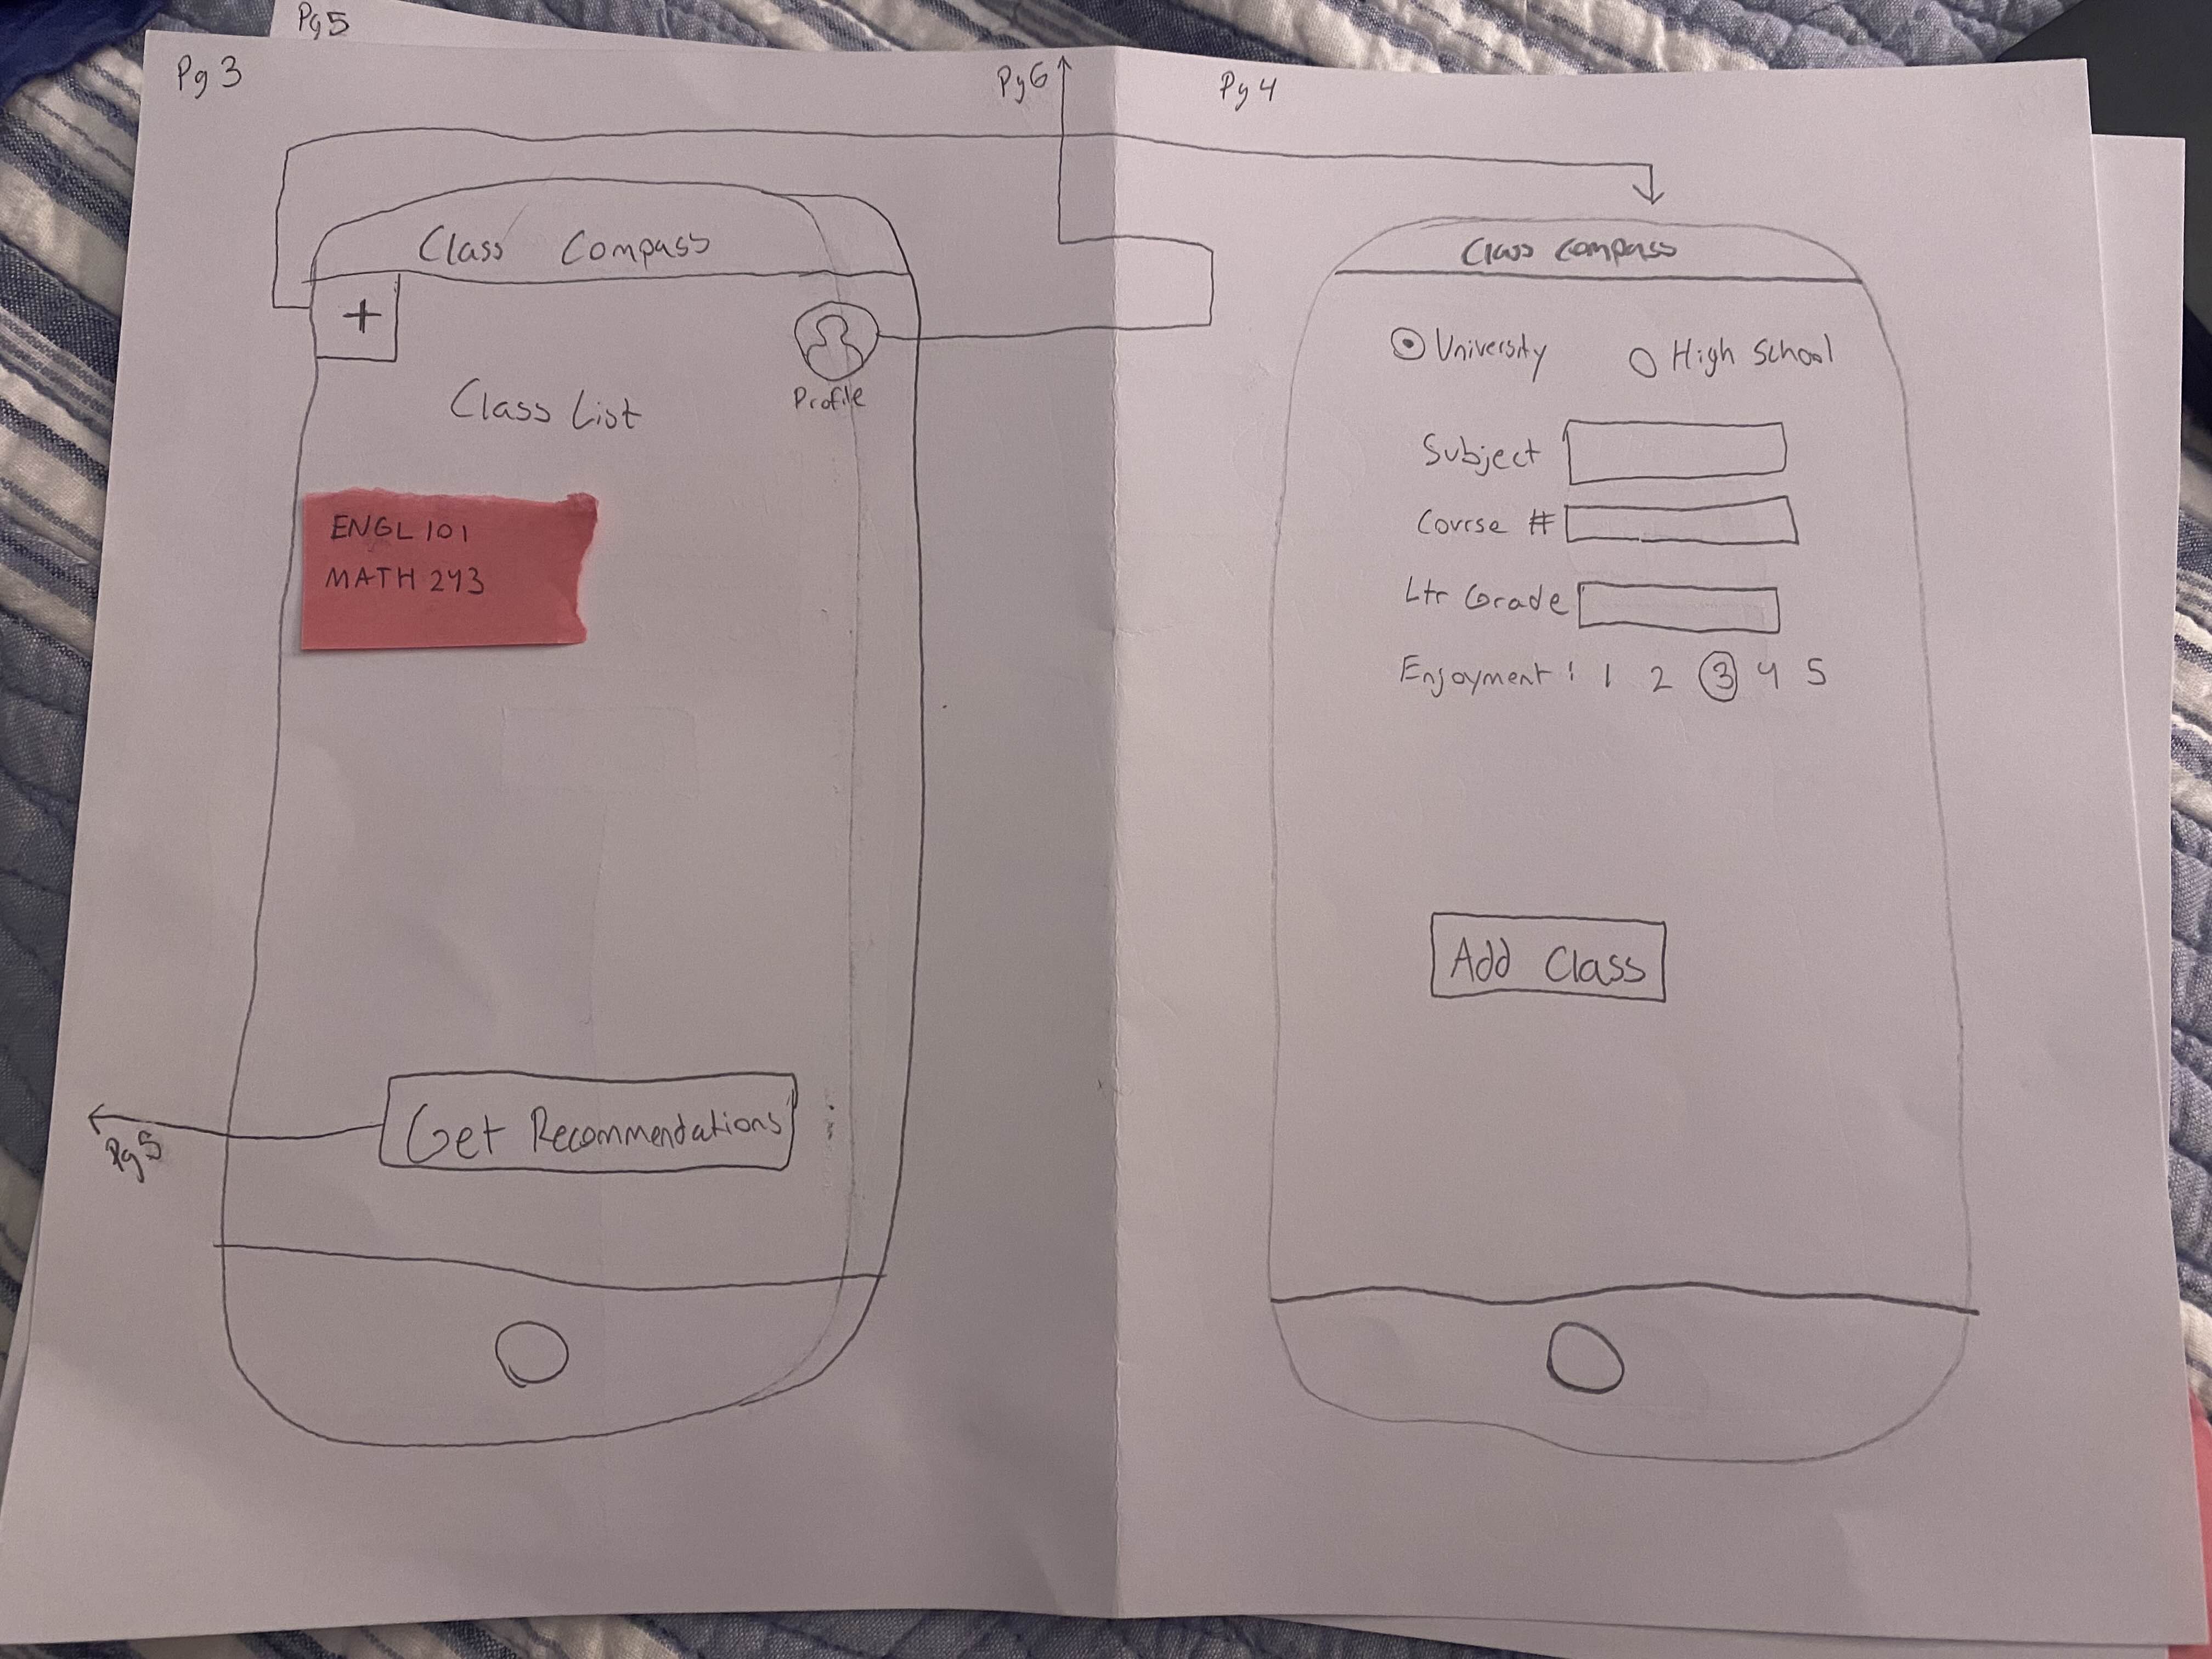 Pg 5
Pg 3
Pg 6
Class Compass
+
Profile
Class List
ENGL 101
MATH 243
Get Recommendations
Pg 5
Pg 4
Class Compass
University High School
Subject
Course #
Ltr Grade
Enjoyment: 1 2 3 4 5
Add Class